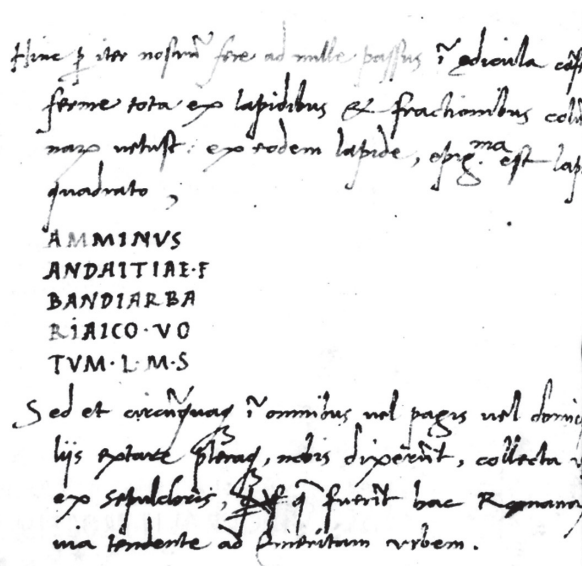 Hinc p iter nostrũ fere ad mille passus ĩ ędicula
ferme tota ex lapidibus & fractionibus
narũ vetust: ex eodem lapide, epig.ma est
quadrato,
AMMINVS
ANDAITIAE·F
BANDIARBA
RIAICO·VO
TVM·L·M·S
Sed et circũquaq ĩ omnibus vel pagis vel
liis extare pleraq, nobis dixerũt, collecta
ex sepulchris, q fuerũt hac Romana
via tendente ad Emeritam urbem.